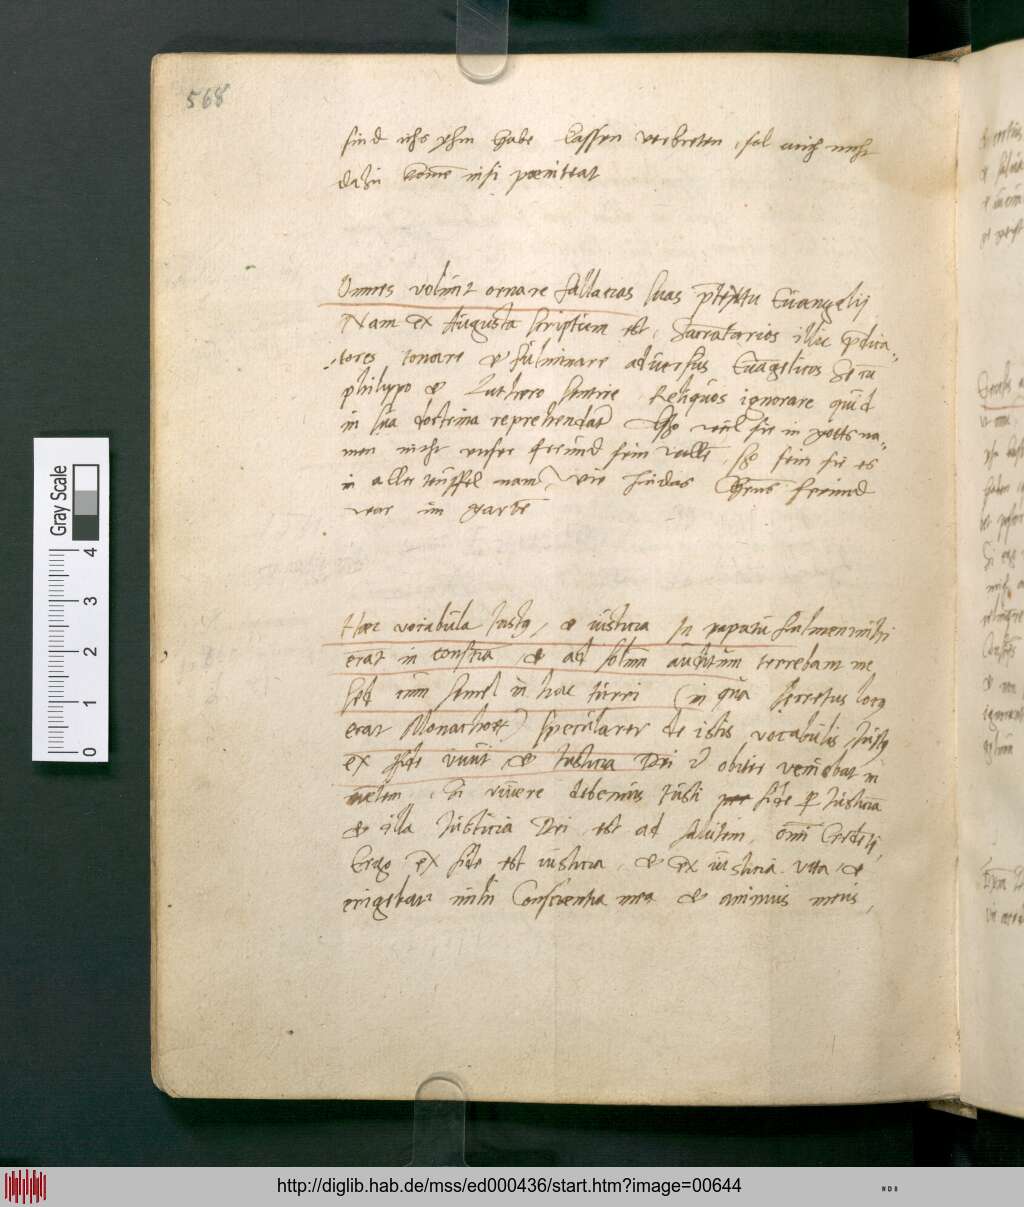 568
sind ichs yhm habe lassen verbieten, sol auch nicht
dazu kome nisi poeniteat
Omnes volunt ornare fallacias suas ptextu Euangelij
Nam ex Augusta scriptum est, Sacratarios illic pdica⸗
tores tonare & fulminare adversus Euagelicos Se cu
philippo & Luthero sentire Reliquos ignorare quid
in sua doctrina reprehendat Also weil sie in gotts na⸗
men nicht unser freund sein wolle, so sein sie es
in aller teuffel name, wie Judas freund
war im garte
Haec vocabula Iustus, & iusticia in papatu fulmen mihi
erat in conscia & ad solum auditum terrebant me
Sed cum semel in hac turri (in qua secretus locus
erat Monachor) specularer de istis vocabulis Iustus
ex fide vivit & Iusticia Dei obiter veniebat in
metem, Si vivere debemus iusti fide p Iusticia
& illa Iusticia Dei est ad salutem omi Credeti,
Ergo ex fide est iusticia & ex iusticia vita &
erigebatur mihi Conscientia mea & animus meus,
Gray Scale
4
3
2
1
0
http://diglib.hab.de/mss/ed000436/start.htm?image=00644